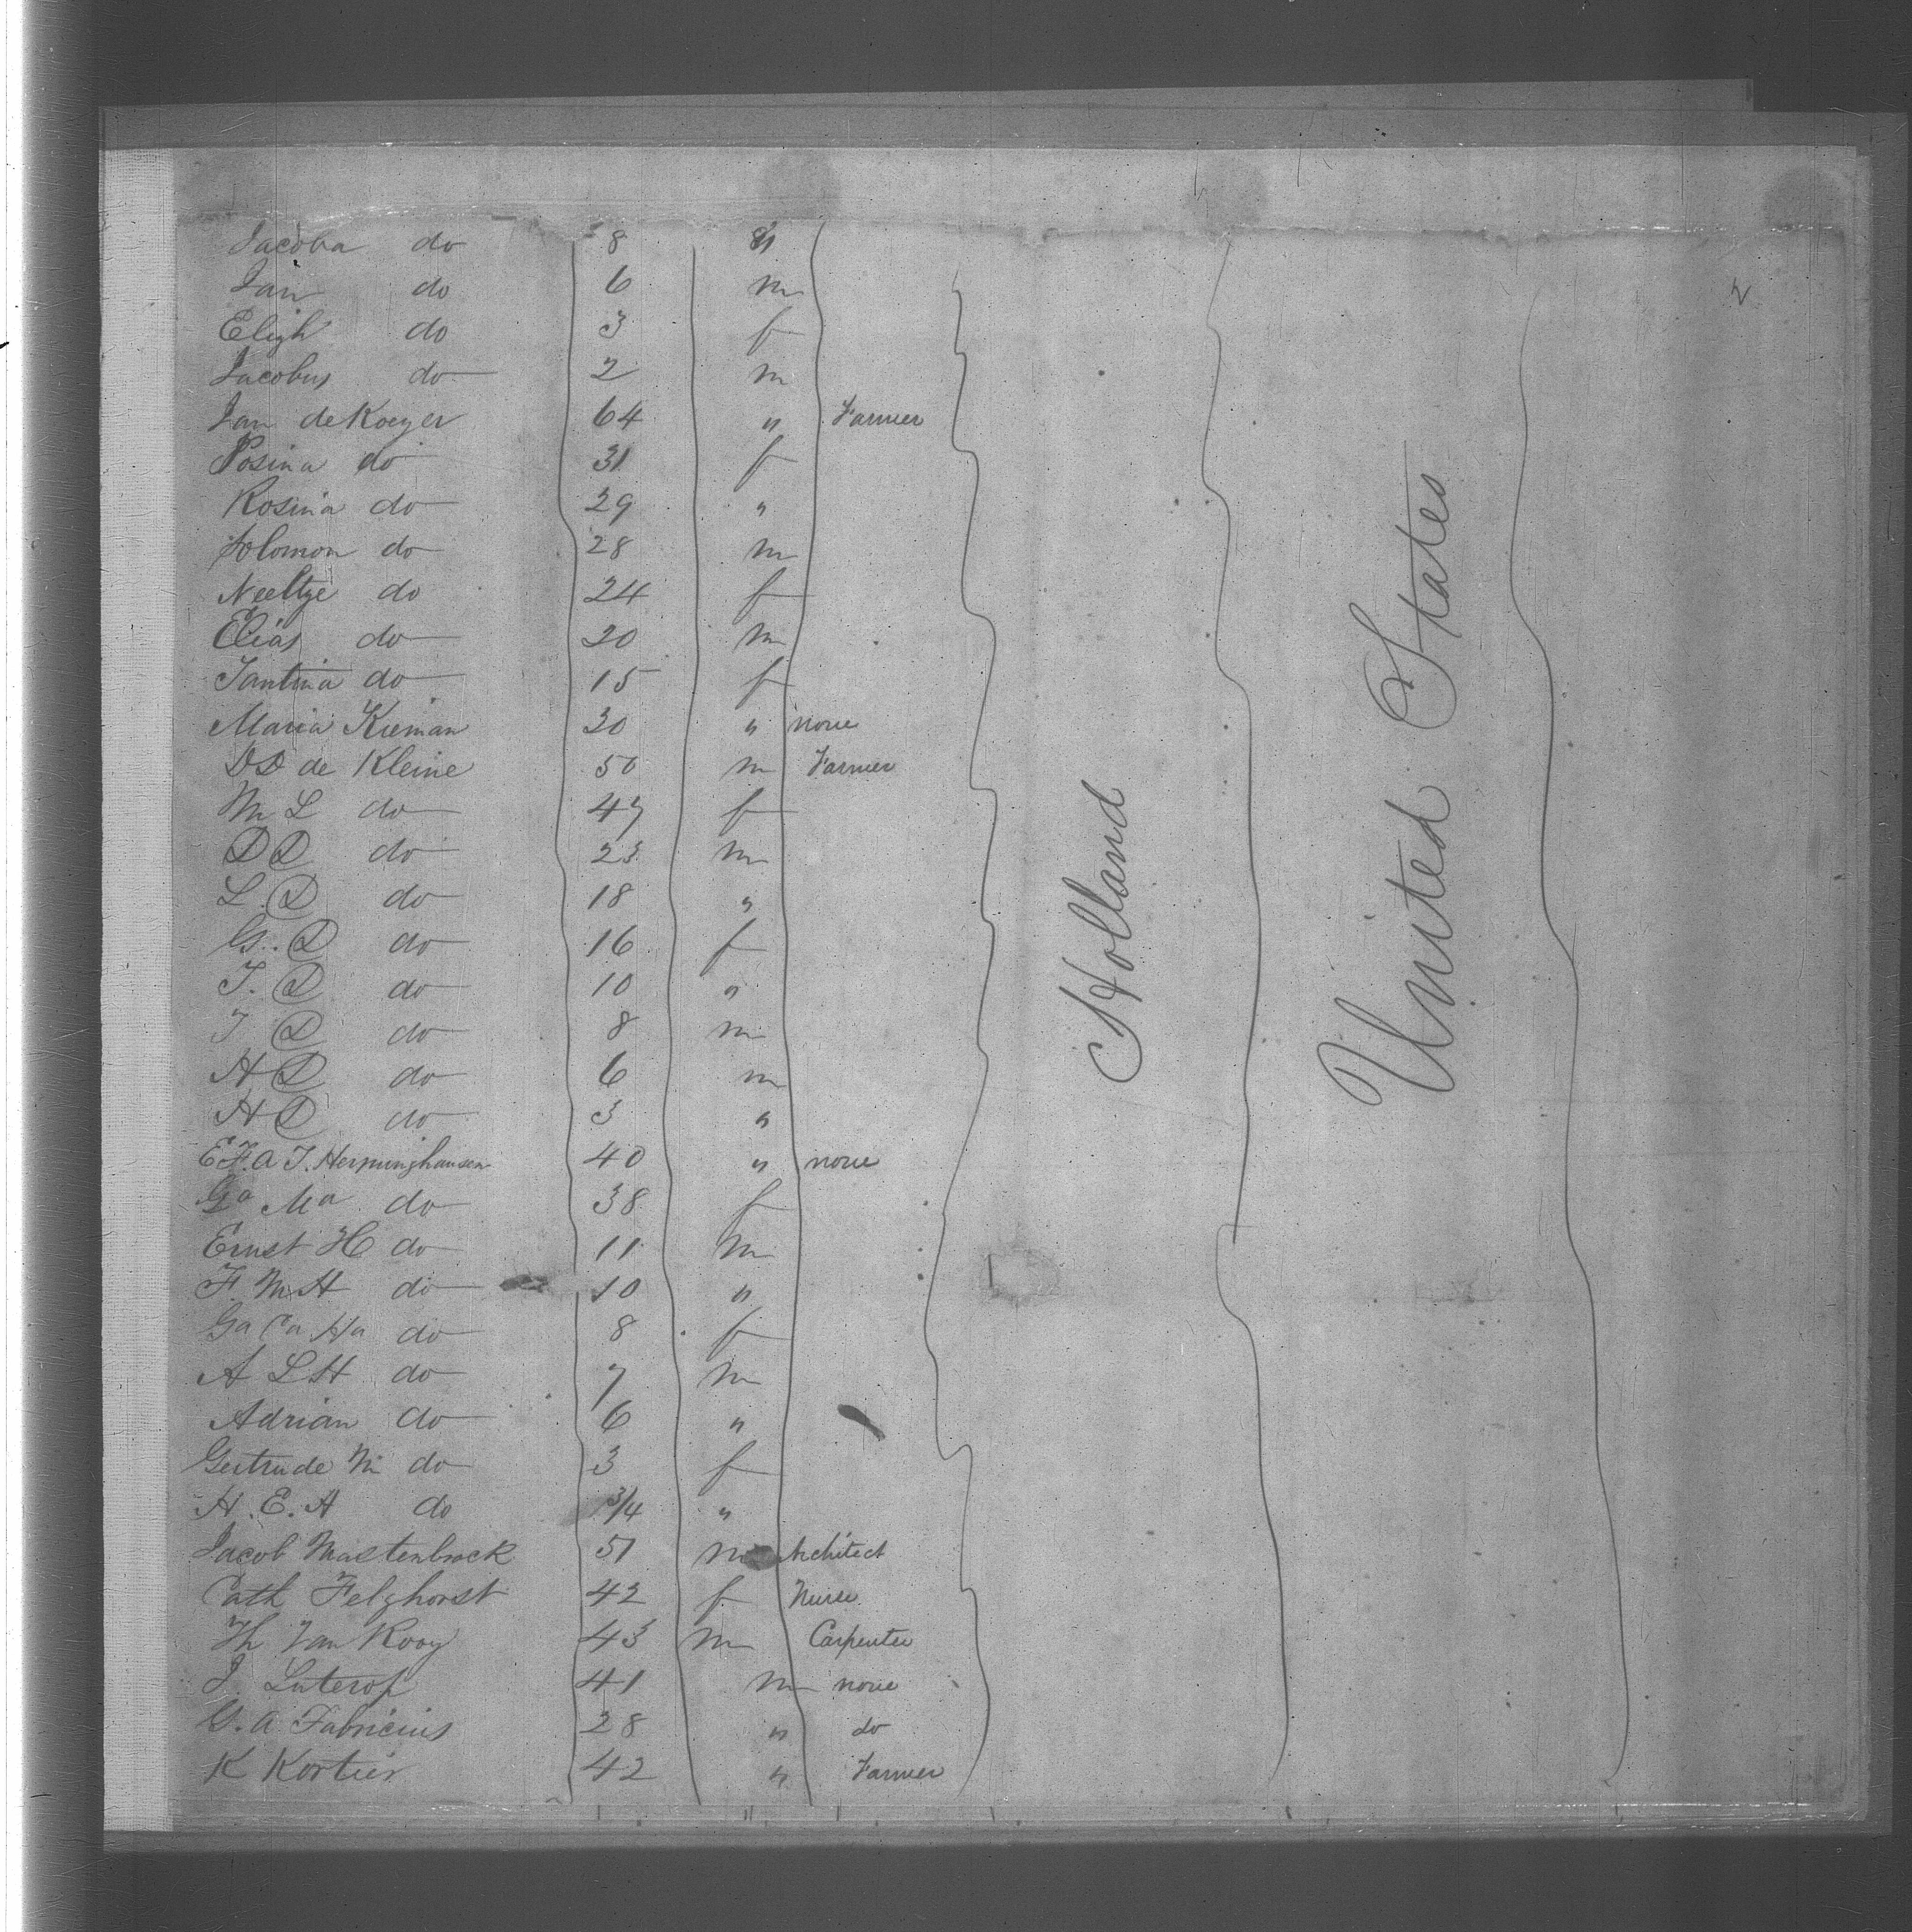 Jacoba do 8 "
Jan do 6 m
Eligh do 3 f
Jacobus do 2 m
Jan de Koeyer 64 " Farmer
Posina do 31 f
Rosina do 29 "
Solomon do 28 m
Neeltje do 24 f
Elias do 20 m
Jantina do 15 f
Maria Kieman 30 " none
DD de Kleine 50 m Farmer
M L do 47 f
D D do 23 m
L. D do 18 "
G. D do 16 f
J. D do 10 "
J D do 8 m
H D do 6 m
H D do 3 "
E F. a J. Herminghausen 40 " none
Ga Ma do 38 f
Ernst H do 11 m
F. M H do 10 "
Ga Ca Ha do 8 f
A L H do 7 m
Adrian do 6 "
Gertrude M do 3 f
H. E. A do 3/4 "
Jacob Mastenbrock 51 m Architect
Cath Felghorst 42 f Nurse
Th Van Kooy 43 m Carpenter
J. Luterop 41 m none
G. a Fabricius 28 " do
K Kortier 42 " Farmer
Holland
United States